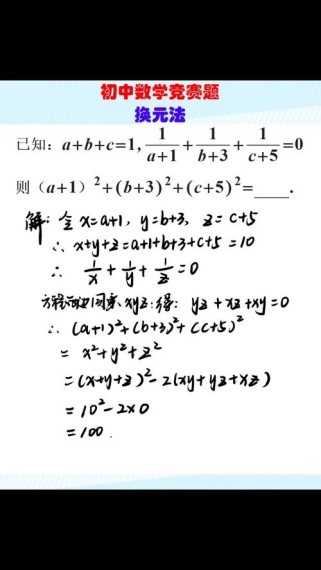 初中数学竞赛题
换元法
已知：a+b+c=1, 1/(a+1) + 1/(b+3) + 1/(c+5) =0
则（a+1）²+(b+3)²+(c+5)²=____.
解：令 x=a+1, y=b+3, z=c+5
∴ x+y+z=a+1+b+3+c+5=10
∴ 1/x + 1/y + 1/z =0
方程两边同乘xyz得： yz+xz+xy=0
∴ (a+1)²+(b+3)²+(c+5)²
= x²+y²+z²
=(x+y+z)²-2(xy+yz+xz)
=10²-2×0
=100.